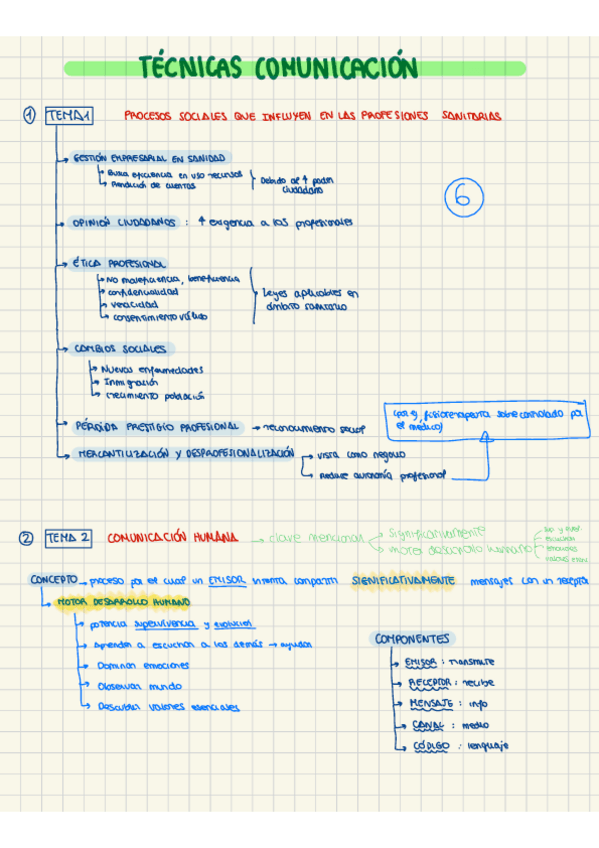 TÉCNICAS COMUNICACIÓN
① TEMA 1 PROCESOS SOCIALES QUE INFLUYEN EN LAS PROFESIONES SANITARIAS
GESTIÓN EMPRESARIAL EN SANIDAD
Busca eficiencia en uso recursos
Rendición de cuentas
Debido al ↑ poder
ciudadano
6
OPINIÓN CIUDADANOS : ↑ exigencia a los profesionales
ÉTICA PROFESIONAL
No maleficiencia, beneficiencia
confidencialidad
veracidad
consentimiento válido
Leyes aplicables en
ámbito sanitario
CAMBIOS SOCIALES
Nuevas enfermedades
Inmigración
crecimiento población
PÉRDIDA PRESTIGIO PROFESIONAL → reconocimiento social
(por ej, fisioterapeuta sobrecontrolado por
el médico)
MERCANTILIZACIÓN Y DESPROFESIONALIZACIÓN → vista como negocio
→ reduce autonomía profesional
② TEMA 2 COMUNICACIÓN HUMANA → clave mencionar → significativamente
→ motor desarrollo humano
sup y evol.
escuchar
emociones
CONCEPTO → proceso por el cual un EMISOR intenta compartir SIGNIFICATIVAMENTE mensajes con un receptor
MOTOR DESARROLLO HUMANO
potencia supervivencia y evolución
Aprenden a escuchar a los demás → ayudar
Dominar emociones
Observar mundo
Descubrir valores esenciales
COMPONENTES
EMISOR : transmite
RECEPTOR : recibe
MENSAJE : info
CANAL : medio
CÓDIGO : lenguaje